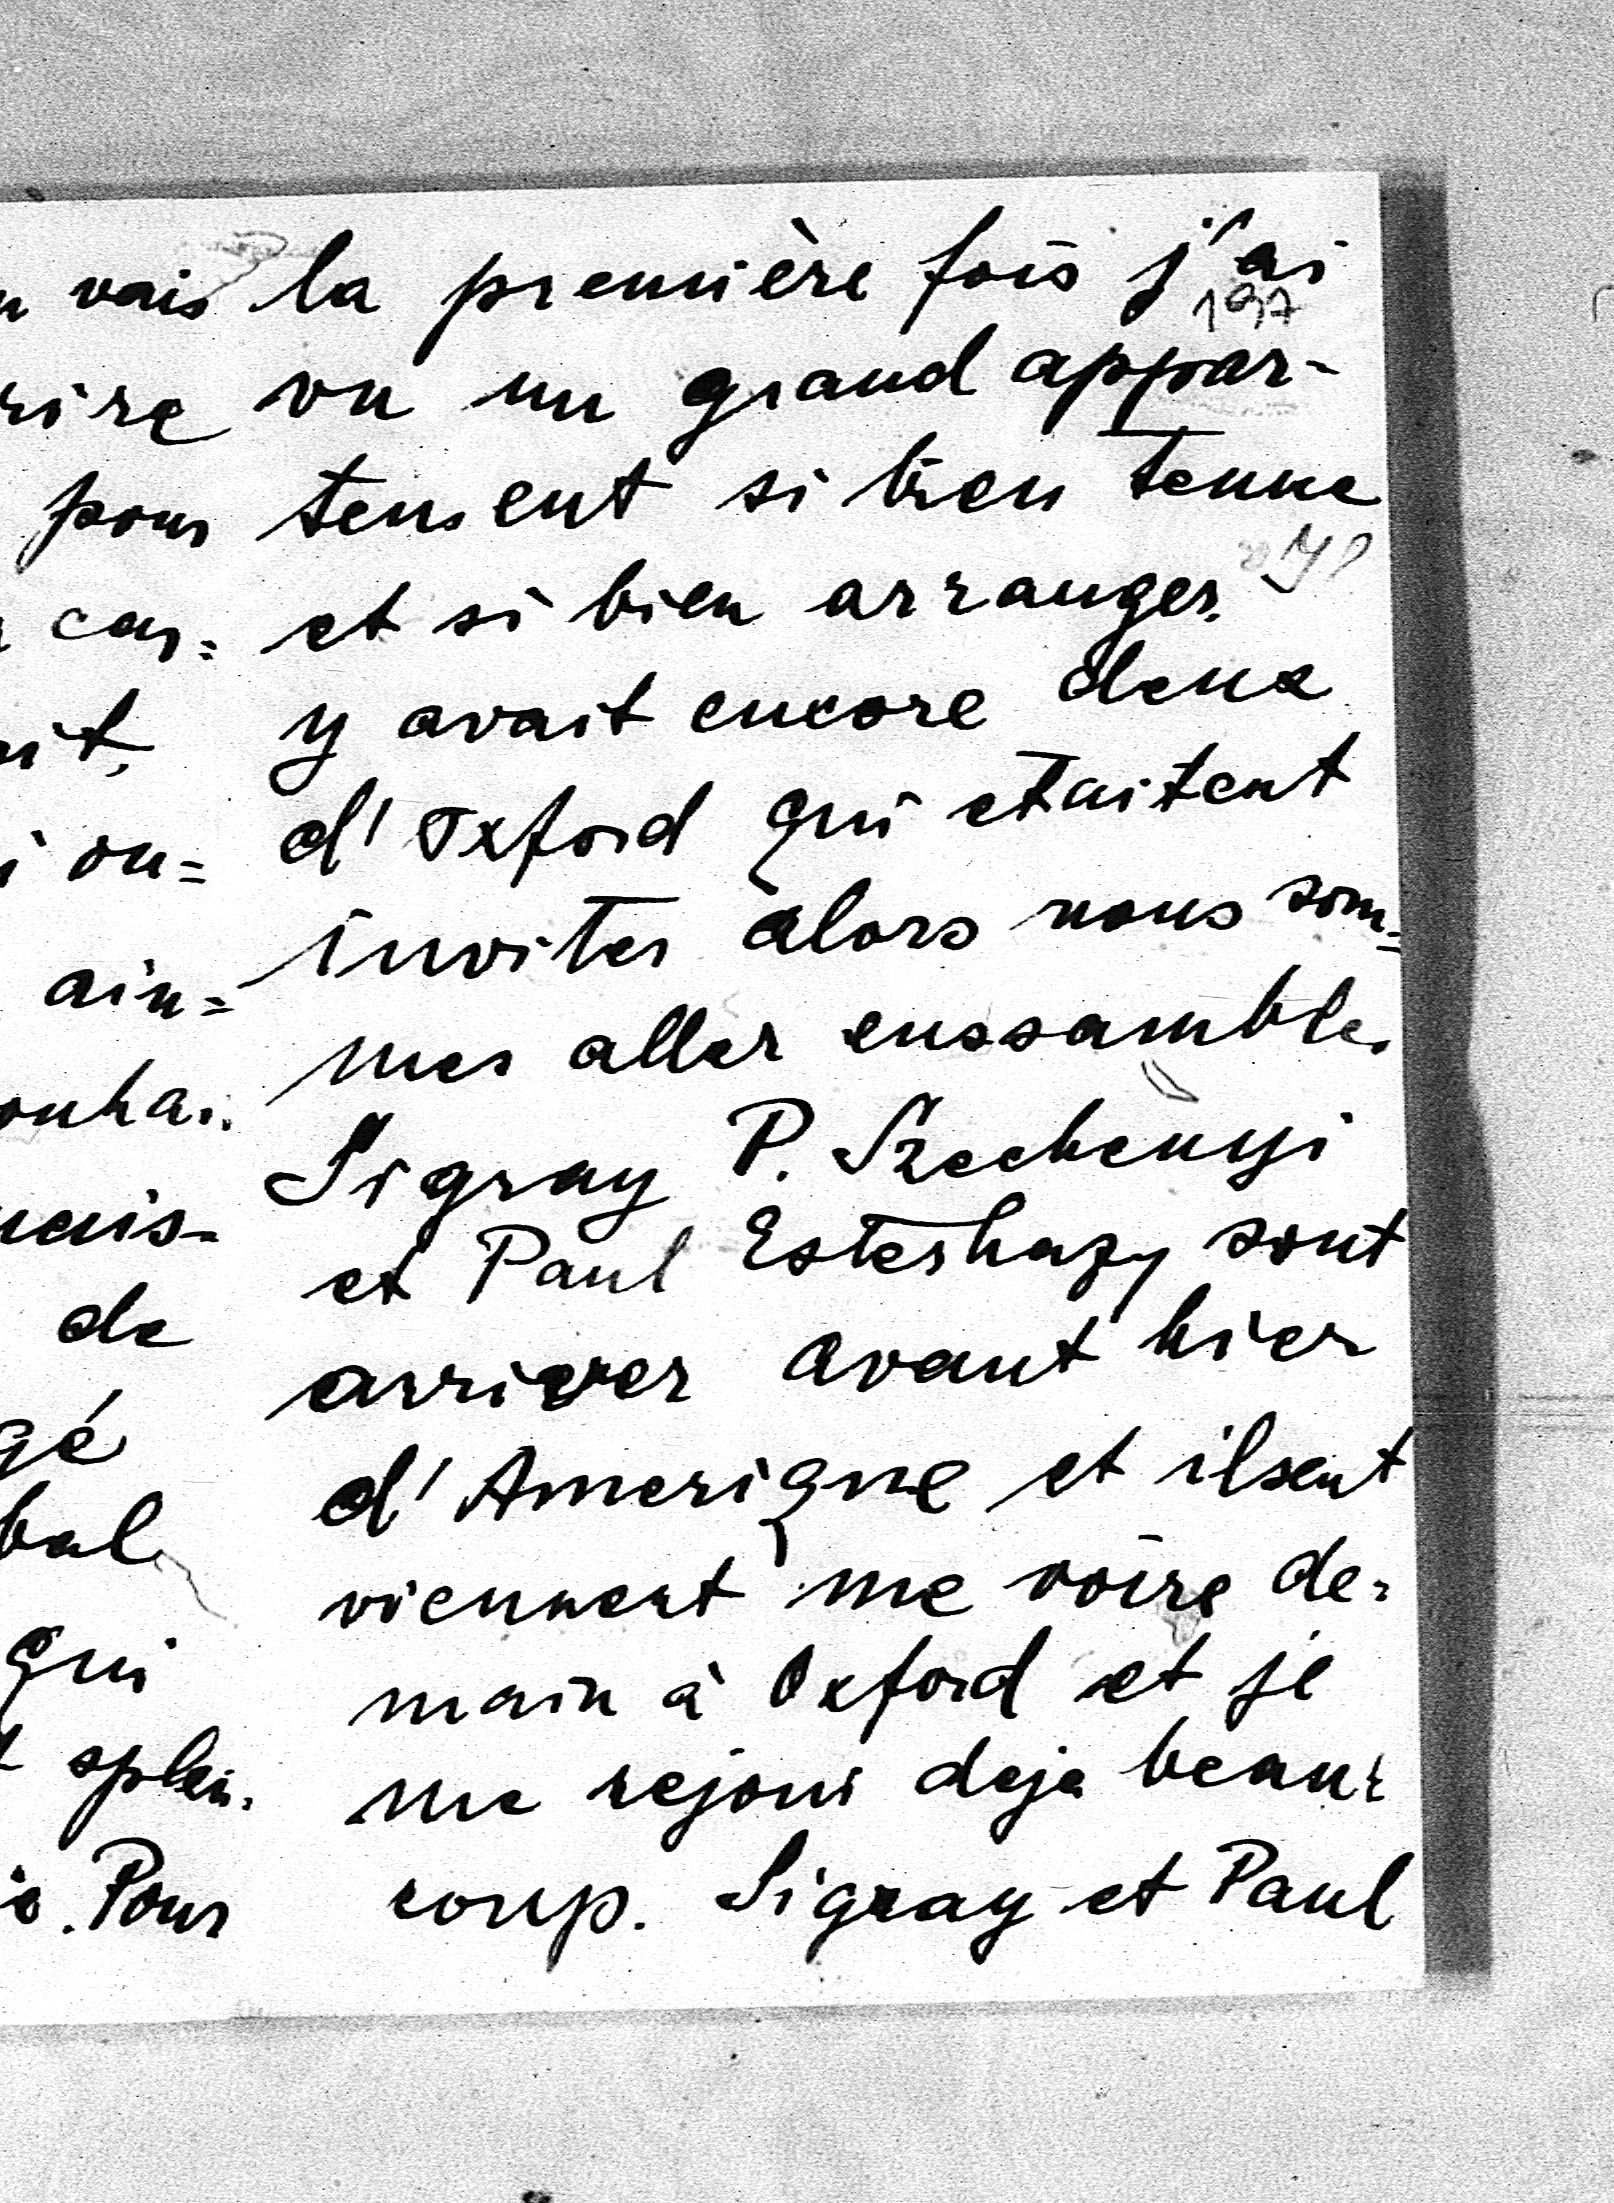 vais
rire
pour
car=
ait,
i ou=
ain=
ouhai.
de
gé
bal
qui
splen.
Pour
la première fois j'ai
197
vu un grand appar-
tement si bien tenue
et si bien arranger. Il
y avait encore deux
d'Oxford qui etaitent
inviter alors nous som=
mes aller enssamble.
Sigray P. Szechenyi
et Paul Esterhazy sont
arriver avant hier
d'Amerique et ilsent
viennent me voire de=
main à Oxford et je
me rejouis deja beau=
coup. Sigray et Paul